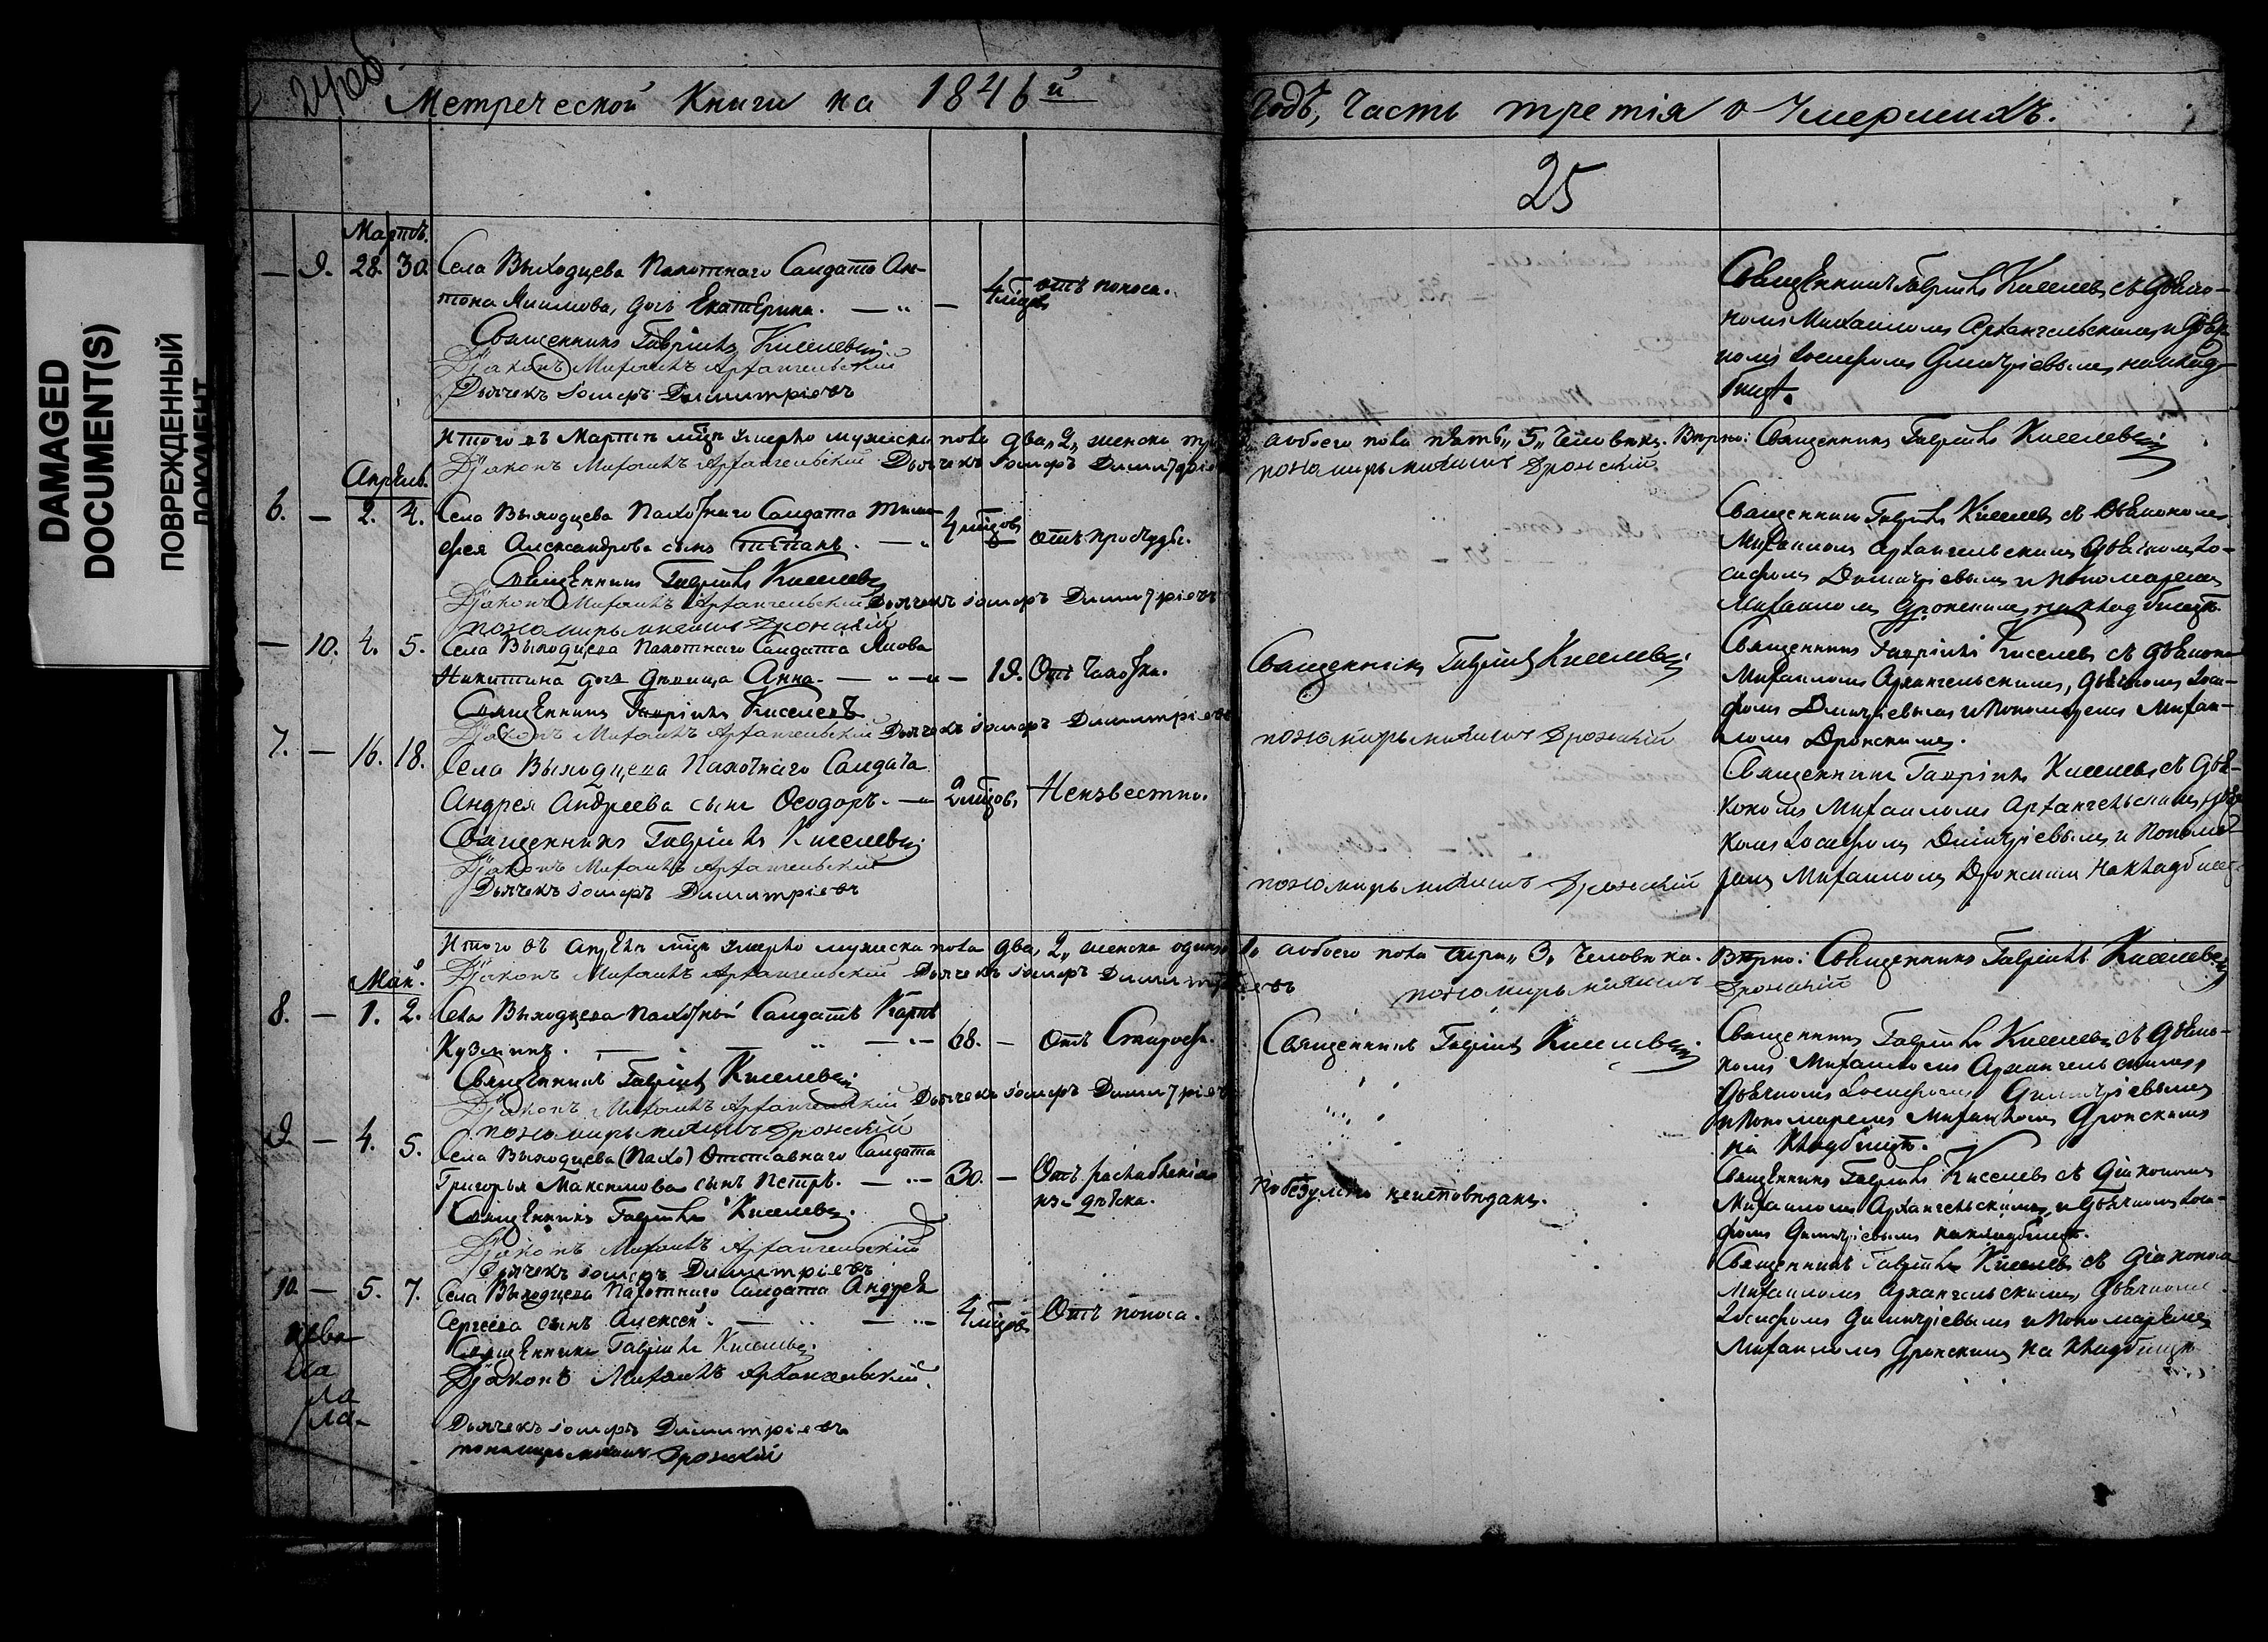 DAMAGED
DOCUMENT(S)
ПОВРЕЖДЕННЫЙ
ДОКУМЕНТ
24об
Метрической Книги на 1846й
Годъ, Часть третія о Умершихъ.
25
Мартъ.
— 9. 28. 30. Села Выходцева Пахотнаго Салдата Ан-
тона дочь Екатерина. — " — 4 мцов отъ поноса.
Священникъ Гавріилъ Киселевъ
Діаконъ Михаилъ Архангельскій
Дьячекъ Іосифъ Димитріевъ
Священникъ Гавріилъ Киселевъ съ Діако-
номъ Михаиломъ Архангельскимъ и Дьяч-
комъ Іосифомъ Димитріевымъ на клад-
бищѣ.
Итого въ Мартѣ мцѣ умерло мужеска пола два, 2, женска
а обоего пола пять, 5, Человѣкъ. Вѣрно: Священникъ Гавріилъ Киселевъ
Діаконъ Михаилъ Архангельскій Дьячекъ Іосифъ Димитріевъ
пономарь Михаилъ Дронскій
Апрѣль.
6. — 2. 4. Села Выходцева Пахотнаго Салдата Тимо-
фея Александрова сынъ Стефанъ. — " 4 мцов отъ простуды.
Священникъ Гавріилъ Киселевъ
Діаконъ Михаилъ Архангельскій Дьячекъ Іосифъ Димитріевъ
пономарь Михаилъ Дронскій
Священникъ Гавріилъ Киселевъ съ Діакономъ
Михаиломъ Архангельскимъ Дьячкомъ Іо-
сифомъ Димитріевымъ и Пономаремъ
Михаиломъ Дронскимъ на кладбищѣ.
— 10. 4. 5. Села Выходцева Пахотнаго Салдата Якова
Никитина дочь дѣвица Анна. — " — " — 19. Отъ Чахотки.
Священникъ Гавріилъ Киселевъ
Діаконъ Михаилъ Архангельскій Дьячекъ Іосифъ Димитріевъ
Священникъ Гавріилъ Киселевъ
пономарь Михаилъ Дронскій
Священникъ Гавріилъ Киселевъ съ Діакономъ
Михаиломъ Архангельскимъ, Дьячкомъ Іоси-
фомъ Димитріевымъ и Пономаремъ Михаи-
ломъ Дронскимъ.
7. — 16. 18. Села Выходцева Пахотнаго Салдата
Андрея Андреева сынъ Ѳеодоръ. — " 2 мцов, Неизвестно.
Священникъ Гавріилъ Киселевъ
Діаконъ Михаилъ Архангельскій
Дьячекъ Іосифъ Димитріевъ
пономарь Михаилъ Дронскій
Священникъ Гавріилъ Киселевъ съ Діа-
кономъ Михаиломъ Архангельскимъ, Дьяч-
комъ Іосифомъ Димитріевымъ и Понома-
ремъ Михаиломъ Дронскимъ на кладбищѣ
Итого въ Апрѣлѣ мцѣ умерло мужеска пола два, 2, женска одинъ
1, а обоего пола три, 3, Человѣка. Вѣрно: Священникъ Гавріилъ Киселевъ
Діаконъ Михаилъ Архангельскій Дьячекъ Іосифъ Димитріевъ
пономарь Михаилъ Дронскій
Май.
8. — 1. 2. Села Выходцева Пахотный Салдатъ Карпъ
Кузминъ. — " — " — 68. — Отъ Старости.
Священникъ Гавріилъ Киселевъ
Діаконъ Михаилъ Архангельскій Дьячекъ Іосифъ Димитріевъ
пономарь Михаилъ Дронскій
Священникъ Гавріилъ Киселевъ
Священникъ Гавріилъ Киселевъ съ Діако-
номъ Михаиломъ Архангельскимъ,
Дьячкомъ Іосифомъ Димитріевымъ
и Пономаремъ Михаиломъ Дронскимъ
на Кладбищѣ.
9. — 4. 5. Села Выходцева (Пахо) Отставнаго Салдата
Григорья Максимова сынъ Петръ. — " — 30. — Отъ разслабленія
из-дѣтска.
По безумію неисповѣданъ.
Священникъ Гавріилъ Киселевъ
Діаконъ Михаилъ Архангельскій
Дьячекъ Іосифъ Димитріевъ
Священникъ Гавріилъ Киселевъ съ Діакономъ
Михаиломъ Архангельскимъ, и Дьячкомъ Іоси-
фомъ Димитріевымъ на кладбищѣ.
10. — 5. 7. Села Выходцева Пахотнаго Салдата Андрея
Сергеева сынъ Алексей. — " — " 4 мцов Отъ поноса.
Священникъ Гавріилъ Киселевъ
Діаконъ Михаилъ Архангельскій.
Дьячекъ Іосифъ Димитріевъ
пономарь Михаилъ Дронскій
Священникъ Гавріилъ Киселевъ съ Діакономъ
Михаиломъ Архангельскимъ, Дьячкомъ
Іосифомъ Димитріевымъ и Пономаремъ
Михаиломъ Дронскимъ на кладбищѣ